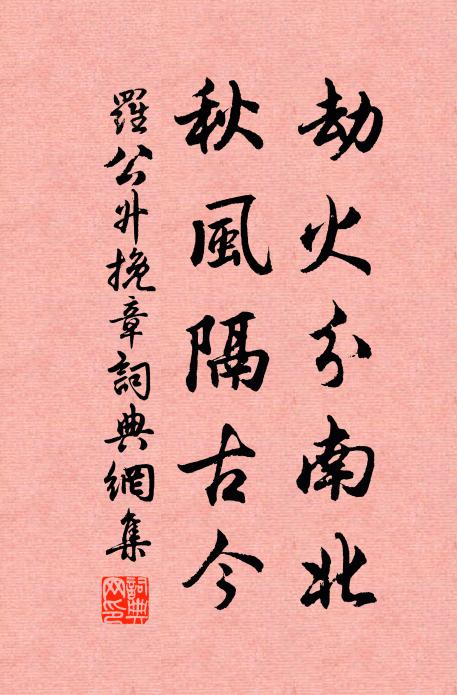 劫火分南北
秋風隔古今
羅公升挽章詞典網集
詞典網印